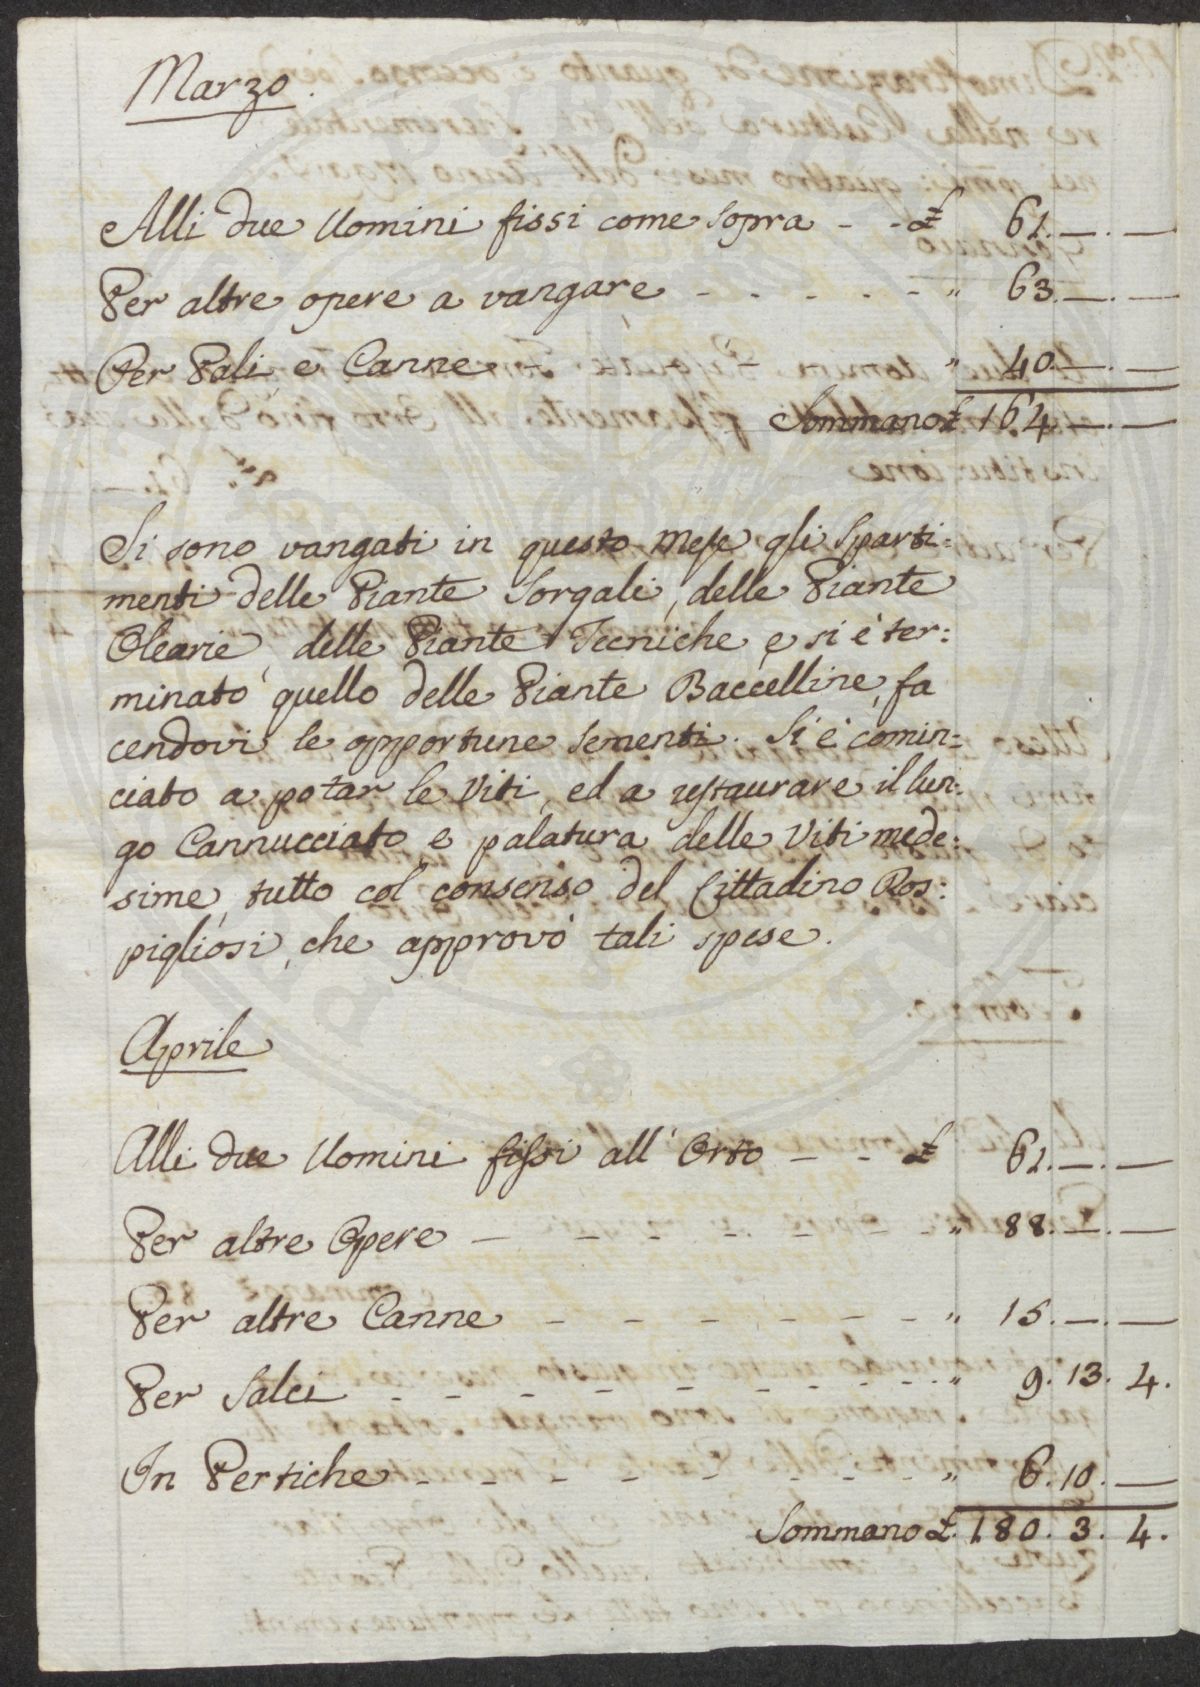 Marzo.
Alli due Uomini fissi come sopra - - £ 61. —. —
Per altre opere a vangare - - - - - " 63. —. —
Per Pali, e Canne - - - " 40. —. —
Sommano £ 164. —. —
Si sono vangati in questo mese gli Sparti=
menti delle Piante Sorgali, delle Piante
Olearie, delle Piante Tecniche e si è ter=
minato quello delle Piante Baccelline, fa
cendovi le opportune sementi. Si è comin=
ciato a potar le Viti, ed a restaurare il lun=
go Cannucciato, e palatura delle Viti mede=
sime, tutto col consenso del Cittadino Ros=
pigliosi, che approvò tali spese.
Aprile
Alli due Uomini fissi all'Orto - - £ 61. —. —
Per altre Opere - - - - - - - " 88. —. —
Per altre Canne - - - - - - " 15. —. —
Per Salci - - - - - - - - - " 9. 13. 4.
In Pertiche - - - - - - - - " 6. 10. —
Sommano £. 180. 3. 4.